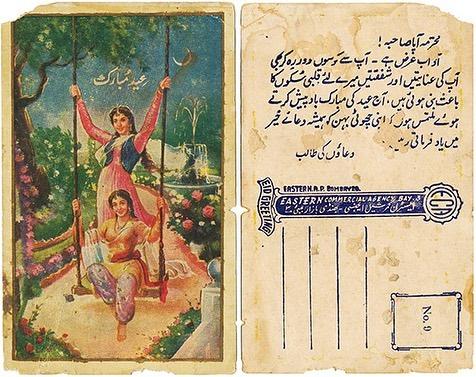 عید مُبارک
محترمہ آپا صاحبہ!
آداب عرض ہے۔ آپ سے کوسوں دور رہ کر بھی
آپ کی عنایتیں اور شفقتیں میرے لئے قلبی سُکون کا
باعث بنی ہوئی ہیں، آج عید کی مبارکباد پیش کرتے
ہوئے ملتمس ہوں کہ اپنی چھوٹی بہن کو ہمیشہ دعائے خیر
میں یاد فرماتی
دعاؤں کی طالب
EASTERN.A.P. BOMBAY20.
EASTERN COMMERCIAL AGENCY. BAY. 3
ایسٹرن کمرشیل ایجنسی۔ بمبئی ۳
EID GREETING
ECA
No. 9